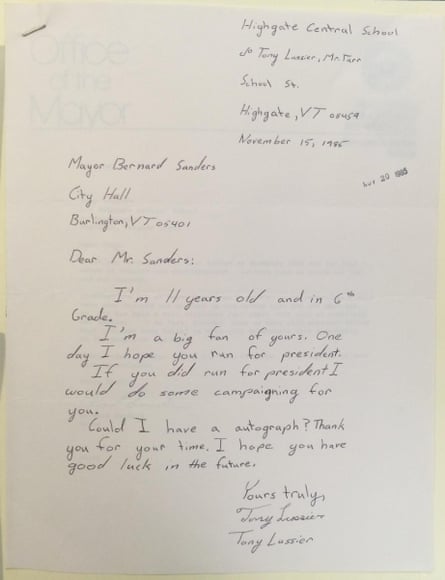 Office
of the
Mayor
Highgate Central School
℅ Tony Lussier, Mr. Tarr
School St.
Highgate, VT 05459
November 15, 1985
NOV 20 1985
Mayor Bernard Sanders
City Hall
Burlington, VT 05401
Dear Mr. Sanders:
I'm 11 years old and in 6th
Grade.
I'm a big fan of yours. One
day I hope you run for president.
If you did run for president I
would do some campaigning for
you.
Could I have a autograph? Thank
you for your time. I hope you have
good luck in the future.
Yours truly,
Tony Lussier
Tony Lussier